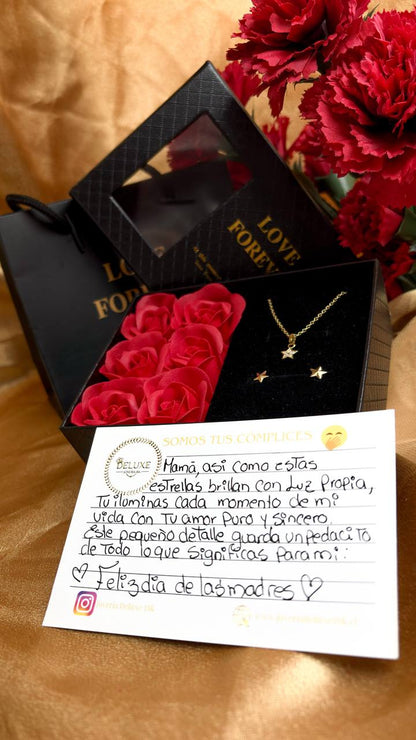 LOVE
FOREVER
LOVE
FOR
SOMOS TUS COMPLICES
DELUXE
Mamá, así como estas
estrellas brillan con Luz Propia,
Tu iluminas cada momento de mi
vida con Tu amor Puro y sincero.
Este pequeño detalle guarda un pedacito
de Todo lo que significas para mi:
Feliz dia de las madres